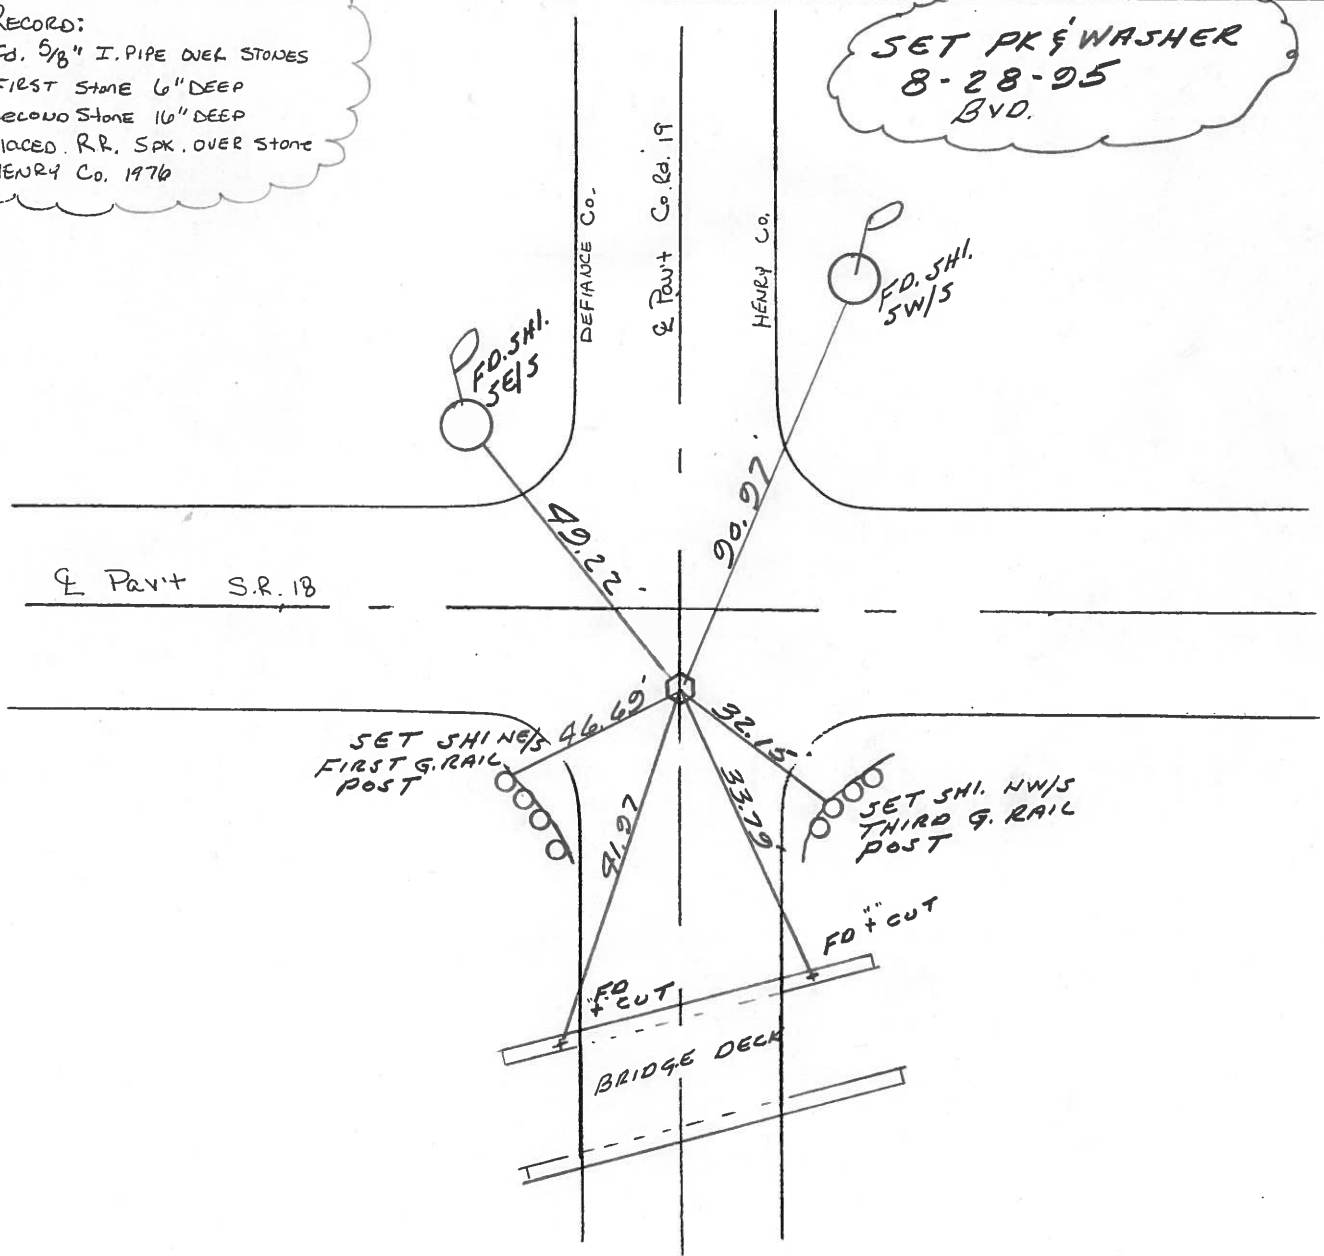 RECORD:
Fd. 5/8" I. PIPE OVER STONES
FIRST Stone 6" DEEP
SECOND Stone 16" DEEP
PLACED R.R. SPK. OVER Stone
HENRY Co. 1976
SET PK & WASHER
8-28-95
BVD.
DEFIANCE Co.
℄ Pav't Co. Rd. 19
HENRY Co.
FD. SHI.
SW/S
FD. SHI.
SE/S
49.22'
90.97'
℄ Pav't S.R. 18
46.69'
32.15'
SET SHI NE/S
FIRST G. RAIL
POST
41.97
33.79'
SET SHI. NW/S
THIRD G. RAIL
POST
FD "+" CUT
FD
"+" CUT
BRIDGE DECK